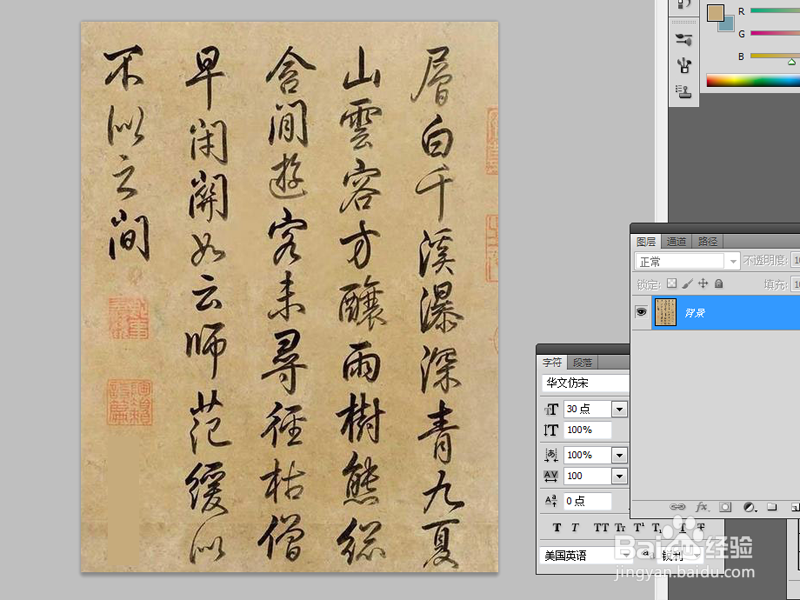 層白千溪瀑深青九夏
山雲容方釀雨樹態總
含閒遊客未尋徑枯僧
早閑關如云師范緩以
不似云間
R
G
B
图层 通道 路径
正常
不透明度: 10
锁定:
填充: 10
背景
字符 段落
华文仿宋
30 点
100%
100%
100
0 点
T T TT Tr T¹ T₁ T T
美国英语
aa 锐利
Baidu经验
jingyan.baidu.com